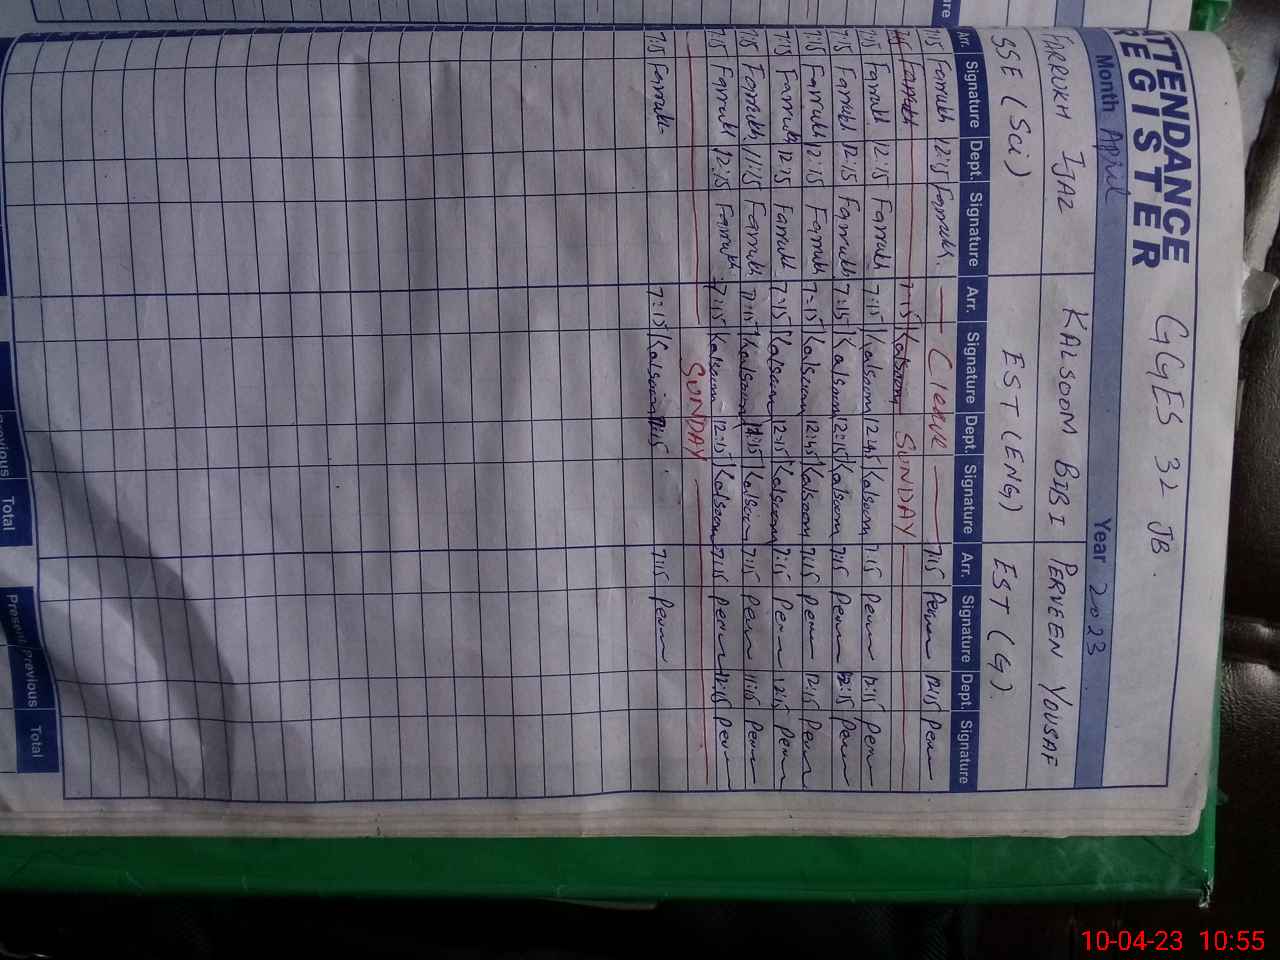 ATTENDANCE REGISTER
GGES 32 JB.
Month April Year 2023
FARRUKH IJAZ KALSOOM BIBI PERVEEN YOUSAF
SSE (Sci) EST (ENG) EST (G)
Arr. Signature Dept. Signature Arr. Signature Dept. Signature Arr. Signature Dept. Signature
7:15 Farrukh 12:15 Farrukh. C leave 7:15 Perveen 12:15 Perv
Farrukh 7:15 Kalsoom SUNDAY
7:15 Farrukh 12:15 Farrukh 7:15 Kalsoom 12:45 Kalsoom 7:15 Perv 12:15 Perv
7:15 Farrukh 12:15 Farrukh 7:15 Kalsoom 12:15 Kalsoom 7:15 Perv 12:15 Perv
7:15 Farrukh 12:15 Farrukh 7:15 Kalsoom 12:45 Kalsoom 7:15 Perv 12:15 Perv
7:15 Farrukh 12:15 Farrukh 7:15 Kalsoom 12:15 Kalsoom 7:15 Perv 12:15 Perv
7:15 Farrukh. 11:15 Farrukh 7:15 Kalsoom Kalsoom 7:15 Perv 11:15 Perv
7:15 Farrukh 12:15 Farrukh 7:15 Kalsoom 12:15 Kalsoom 7:15 Perv 12:15 Perv
SUNDAY
7:15 Farrukh 7:15 Kalsoom 7:15 Perv
Previous Total
Present Previous Total
10-04-23 10:55